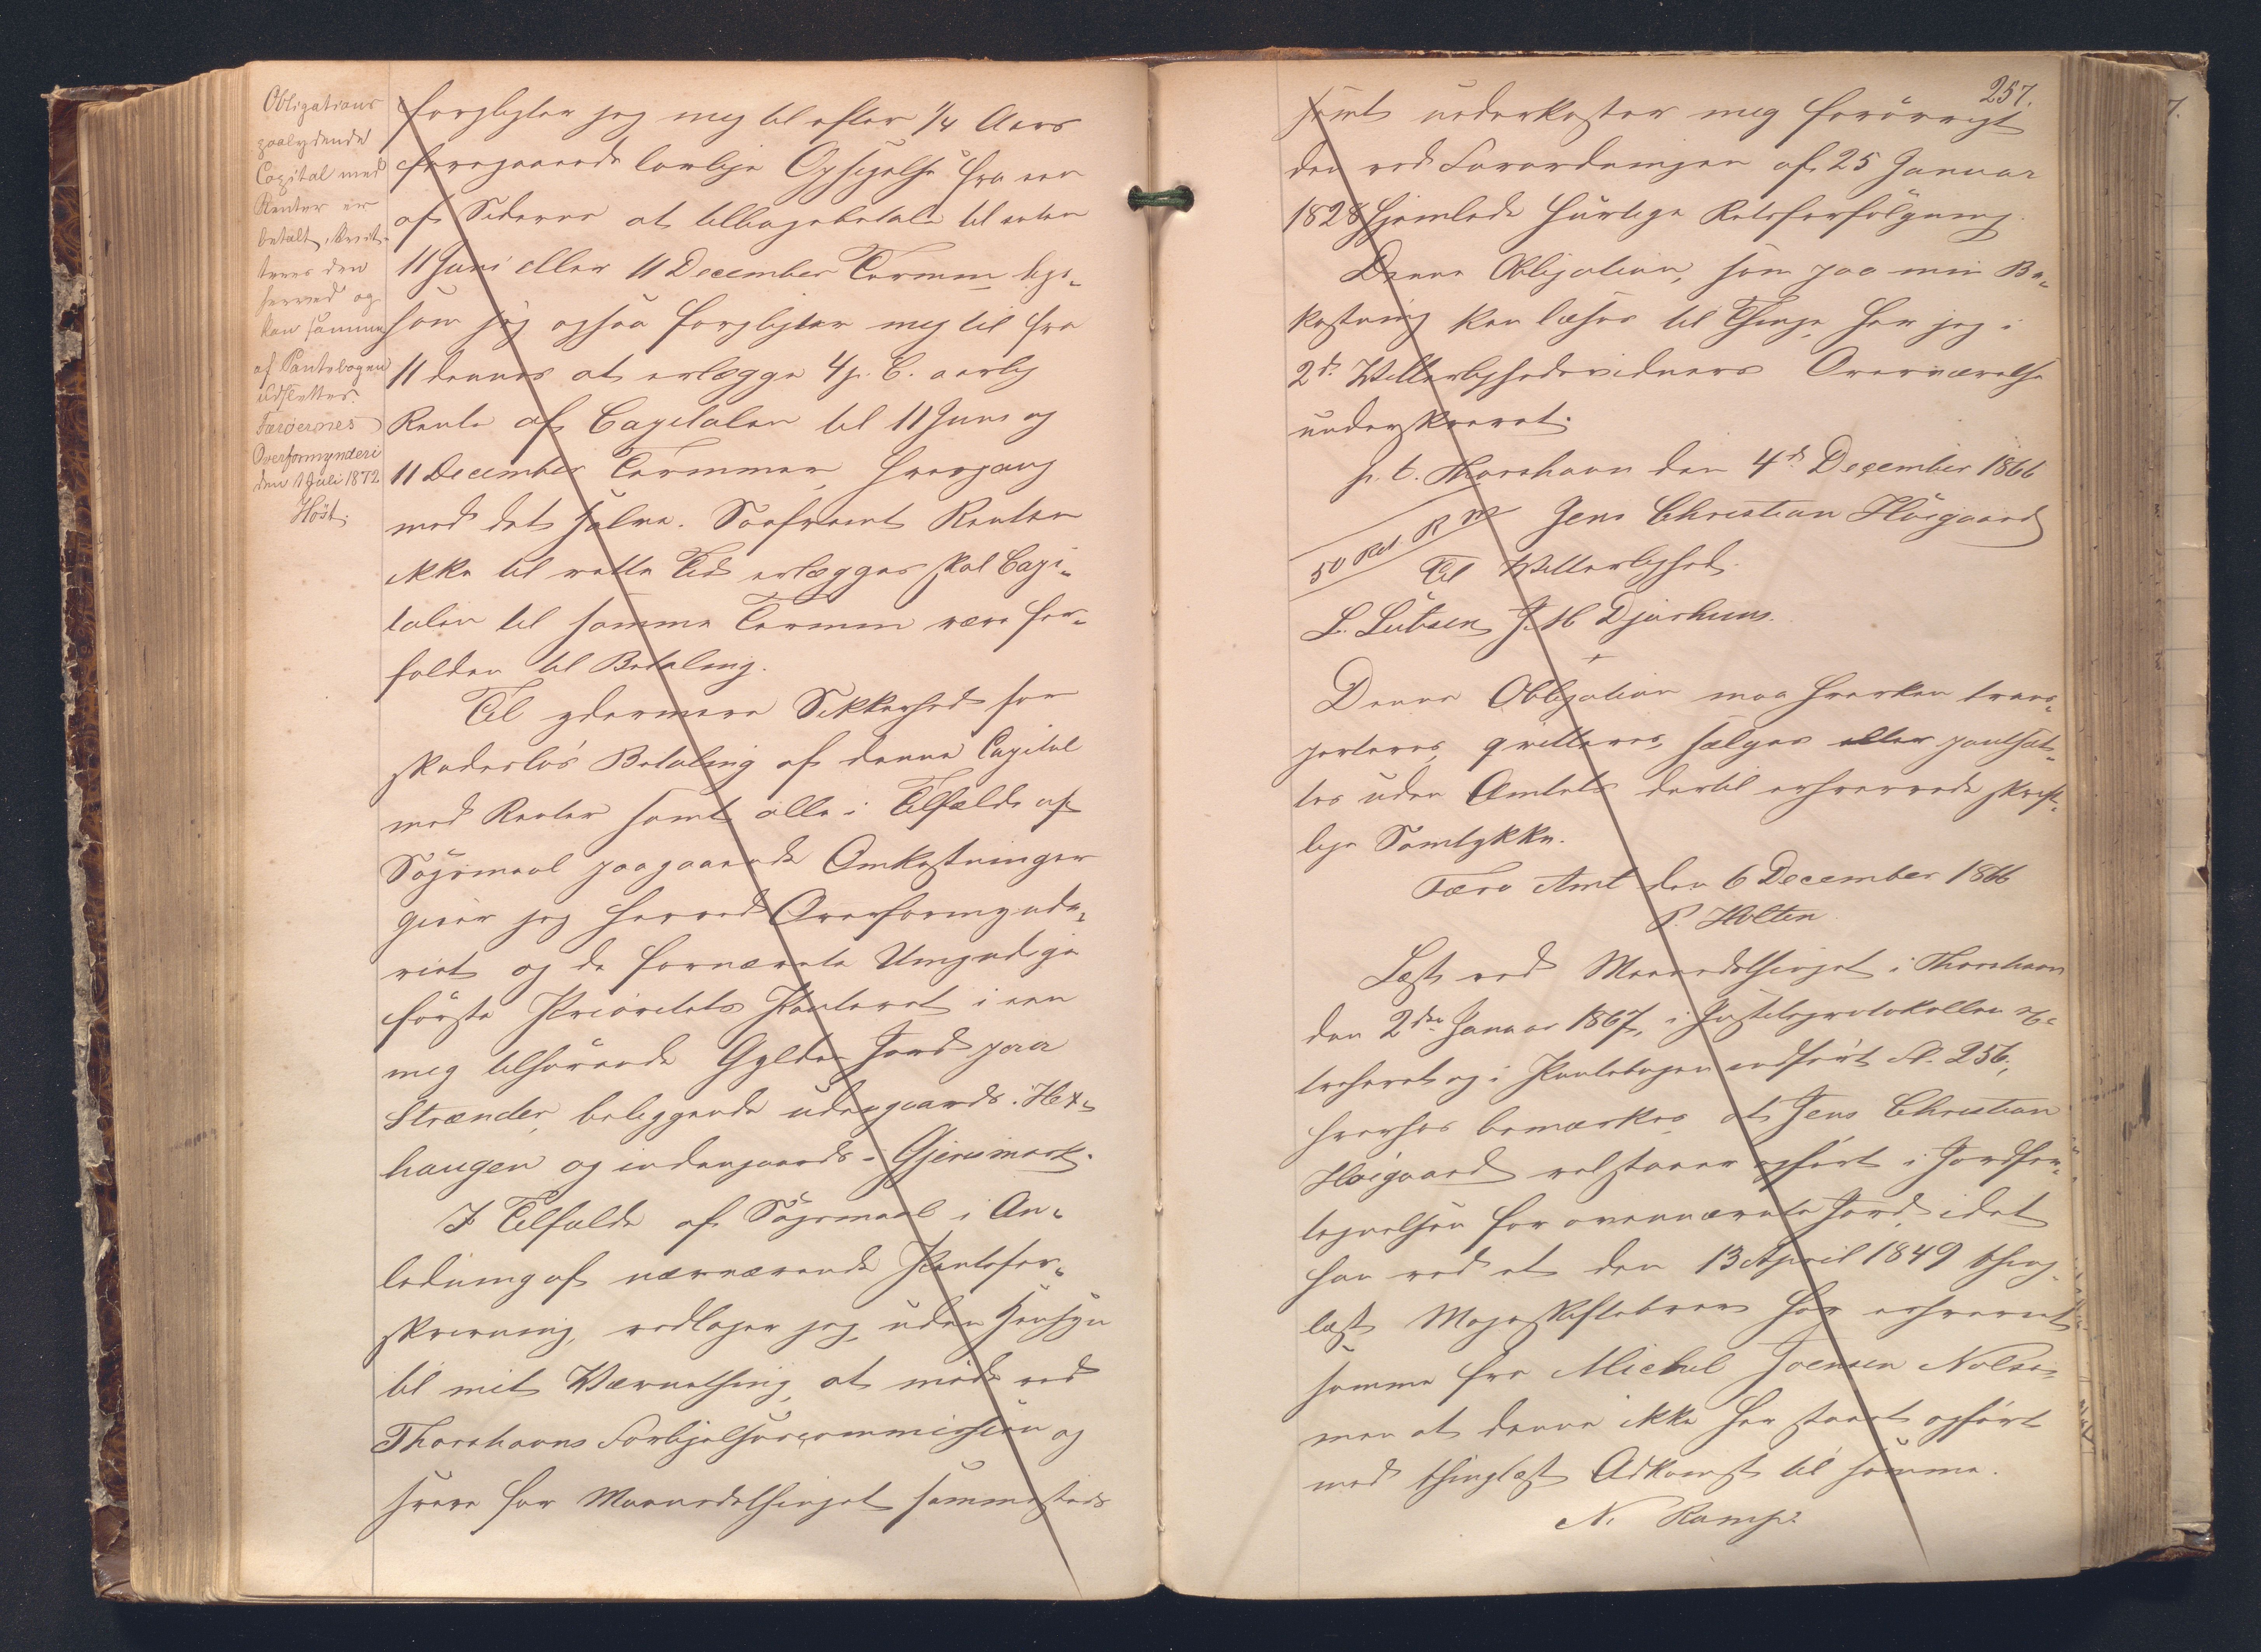 Obligations
paalydende
Capital med
Renter er
betalt, kvit-
teres den
herved og
kan samme
af Pantebogen
udslettes.
Færøernes
Overformynderi
den 1 Juli 1872.
Höst.
forpligter jeg mig til efter 1/4 Aars
foregaaende lovlige Opsigelse fra een
af Siderne at tilbagebetale til enten
11 Juni eller 11 December Termin lige-
som jeg ogsaa forpligter mig til fra
11 dennes at erlægge 4 p. C. aarlig
Rente af Capitalen til 11 Juni og
11 December Terminer, hvergang
med det halve. Saafremt Renten
ikke til rette Tid erlægges skal Capi-
talen til samme Termin være for-
falden til Betaling.
Til ydermere Sikkerhed for
skadeslös Betaling af denne Capital
med Renter samt alle i Tilfælde af
Sögsmaal paagaaende Omkostninger
giver jeg herved Overformynde-
riet og de fornævnte Umyndige
förste Prioritets Panteret i een
mig tilhörende Gylden Jord paa
Strænder, beliggende udengaards i Het-
haugen og indengaards i Gjerumark.
I Tilfælde af Sögsmaal i An-
ledning af nærværende Pantefor-
skrivning, vedtager jeg, uden Hensyn
til mit Værnething, at möde ved
Thorshavns Forligelsescommission og
svare for Maanedsthinget sammesteds
257.
samt underkaster mig forövrigt
den ved Forordningen af 25 Januar
1828 hjemlede hurtige Retsforfölgning.
Denne Obligation, som paa min Be-
kostning kan læses til Thinge, har jeg i
2de Vitterlighedsvidners Overværelse
underskrevet.
p. t. Thorshavn den 4de December 1866
50 Rd. R M Jens Christian Höigaard
Til Vitterlighed.
L. Lützen J. M Djurhuus.
Denne Obligation maa hverken trans-
porteres, qvitteres, sælges eller pantsæt-
tes uden Amtets dertil erhvervede skrift-
lige Samtykke.
Færø Amt den 6 December 1866
P. Holten
Læst ved Maanedsthinget i Thorshavn
den 2den Januar 1867, i Justitsprotokollen ex-
traheret og i Pantebogen indfört Fol. 256,
hvorhos bemærkes, at Jens Christian
Höigaard vel staaer opfört i Jordfor-
tegnelsen for ovennævnte Jord, idet
han ved et den 13 April 1849 thing-
læst Mageskiftebrev har erhvervet
samme fra Michel Joensen Nolsø,
men at denne ikke har staaet opfört
med thinglæst Adkomst til samme.
N.